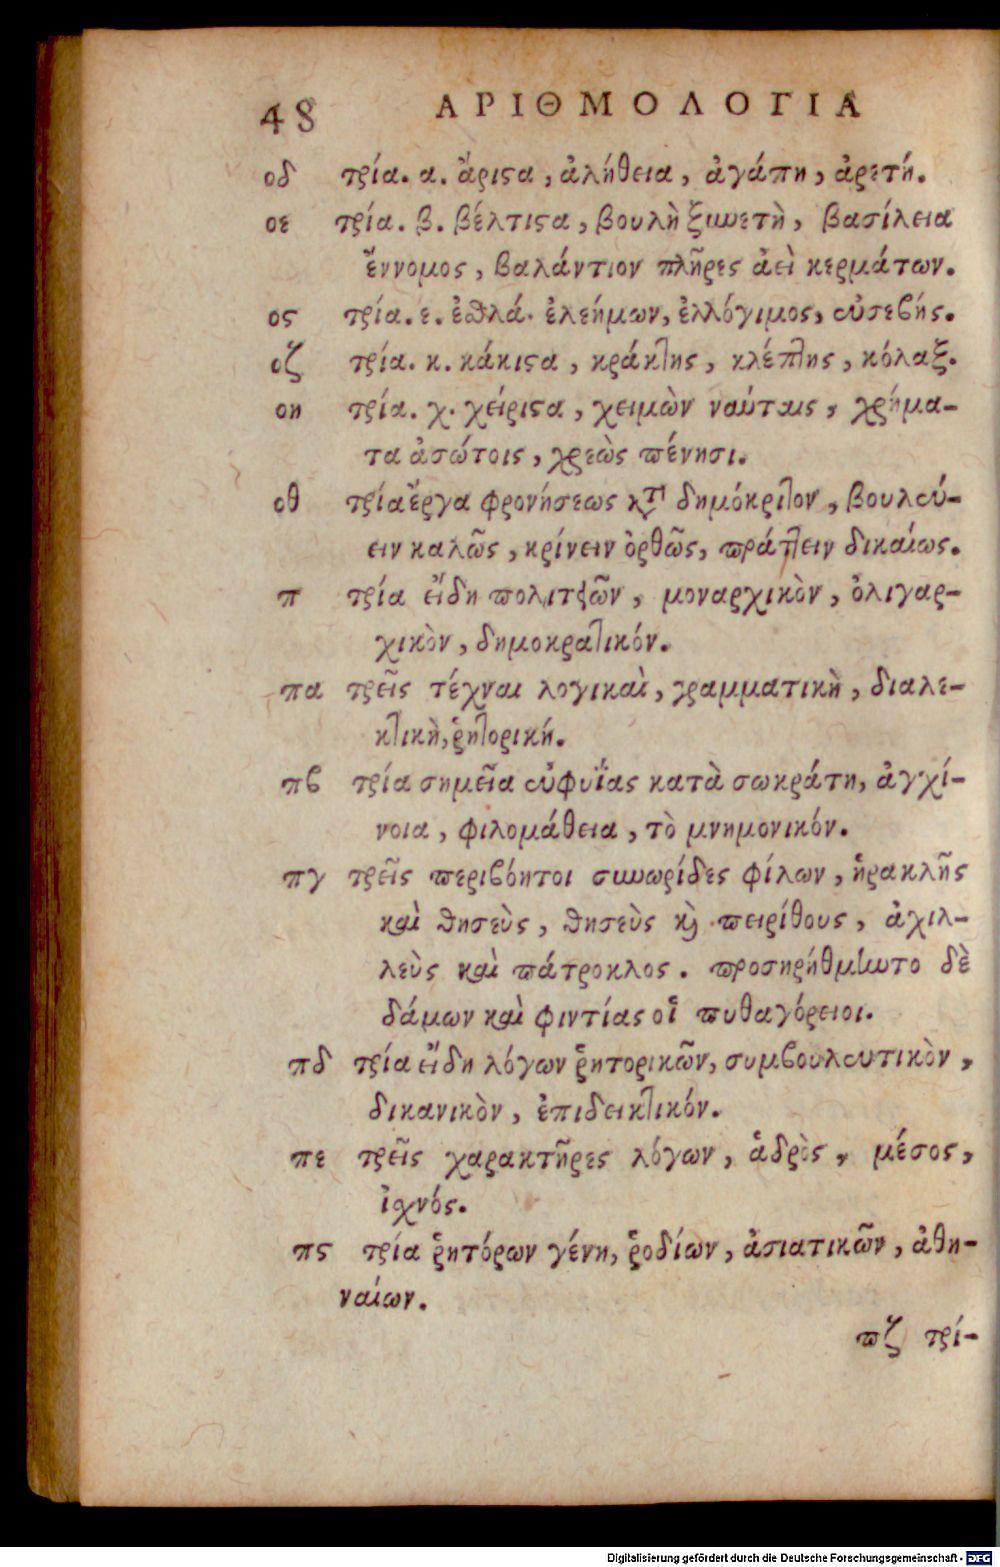 48 ΑΡΙΘΜΟΛΟΓΙΑ
οδ τρία. α. ἄριϛα, ἀλήθεια, ἀγάπη, ἀρετή.
οε τρία. β. βέλτιϛα, βουλὴ ξυνετὴ, βασίλεια
ἔννομος, βαλάντιον πλῆρες ἀεὶ κερμάτων.
οϛ τρία. ε. ἐσθλά. ἐλεήμων, ἐλλόγιμος, εὐσεβής.
οζ τρία. κ. κάκιϛα, κράκτης, κλέπτης, κόλαξ.
οη τρία. χ. χείριϛα, χειμὼν ναύταις, χρήμα-
τα ἀσώτοις, χρεὼς πένησι.
οθ τρία ἔργα φρονήσεως κτ̀ δημόκριτον, βουλεύ-
ειν καλῶς, κρίνειν ὀρθῶς, πράττειν δικαίως.
π τρία εἴδη πολιτειῶν, μοναρχικὸν, ὀλιγαρ-
χικὸν, δημοκρατικόν.
πα τρεῖς τέχναι λογικαὶ, γραμματικὴ, διαλε-
κτικὴ, ῥητορική.
πβ τρία σημεῖα εὐφυΐας κατὰ σωκράτη, ἀγχί-
νοια, φιλομάθεια, τὸ μνημονικόν.
πγ τρεῖς περιβόητοι συνωρίδες φίλων, ἡρακλῆς
καὶ θησεὺς, θησεὺς καὶ πειρίθους, ἀχιλ-
λεὺς καὶ πάτροκλος. προσηρήθμηντο δὲ
δάμων καὶ φιντίας οἱ πυθαγόρειοι.
πδ τρία εἴδη λόγων ῥητορικῶν, συμβουλευτικὸν,
δικανικὸν, ἐπιδεικτικόν.
πε τρεῖς χαρακτῆρες λόγων, ἁδρὸς, μέσος,
ἰχνός.
πϛ τρία ῥητόρων γένη, ῥοδίων, ἀσιατικῶν, ἀθη-
ναίων.
πζ τρί-
Digitalisierung gefördert durch die Deutsche Forschungsgemeinschaft - DFG